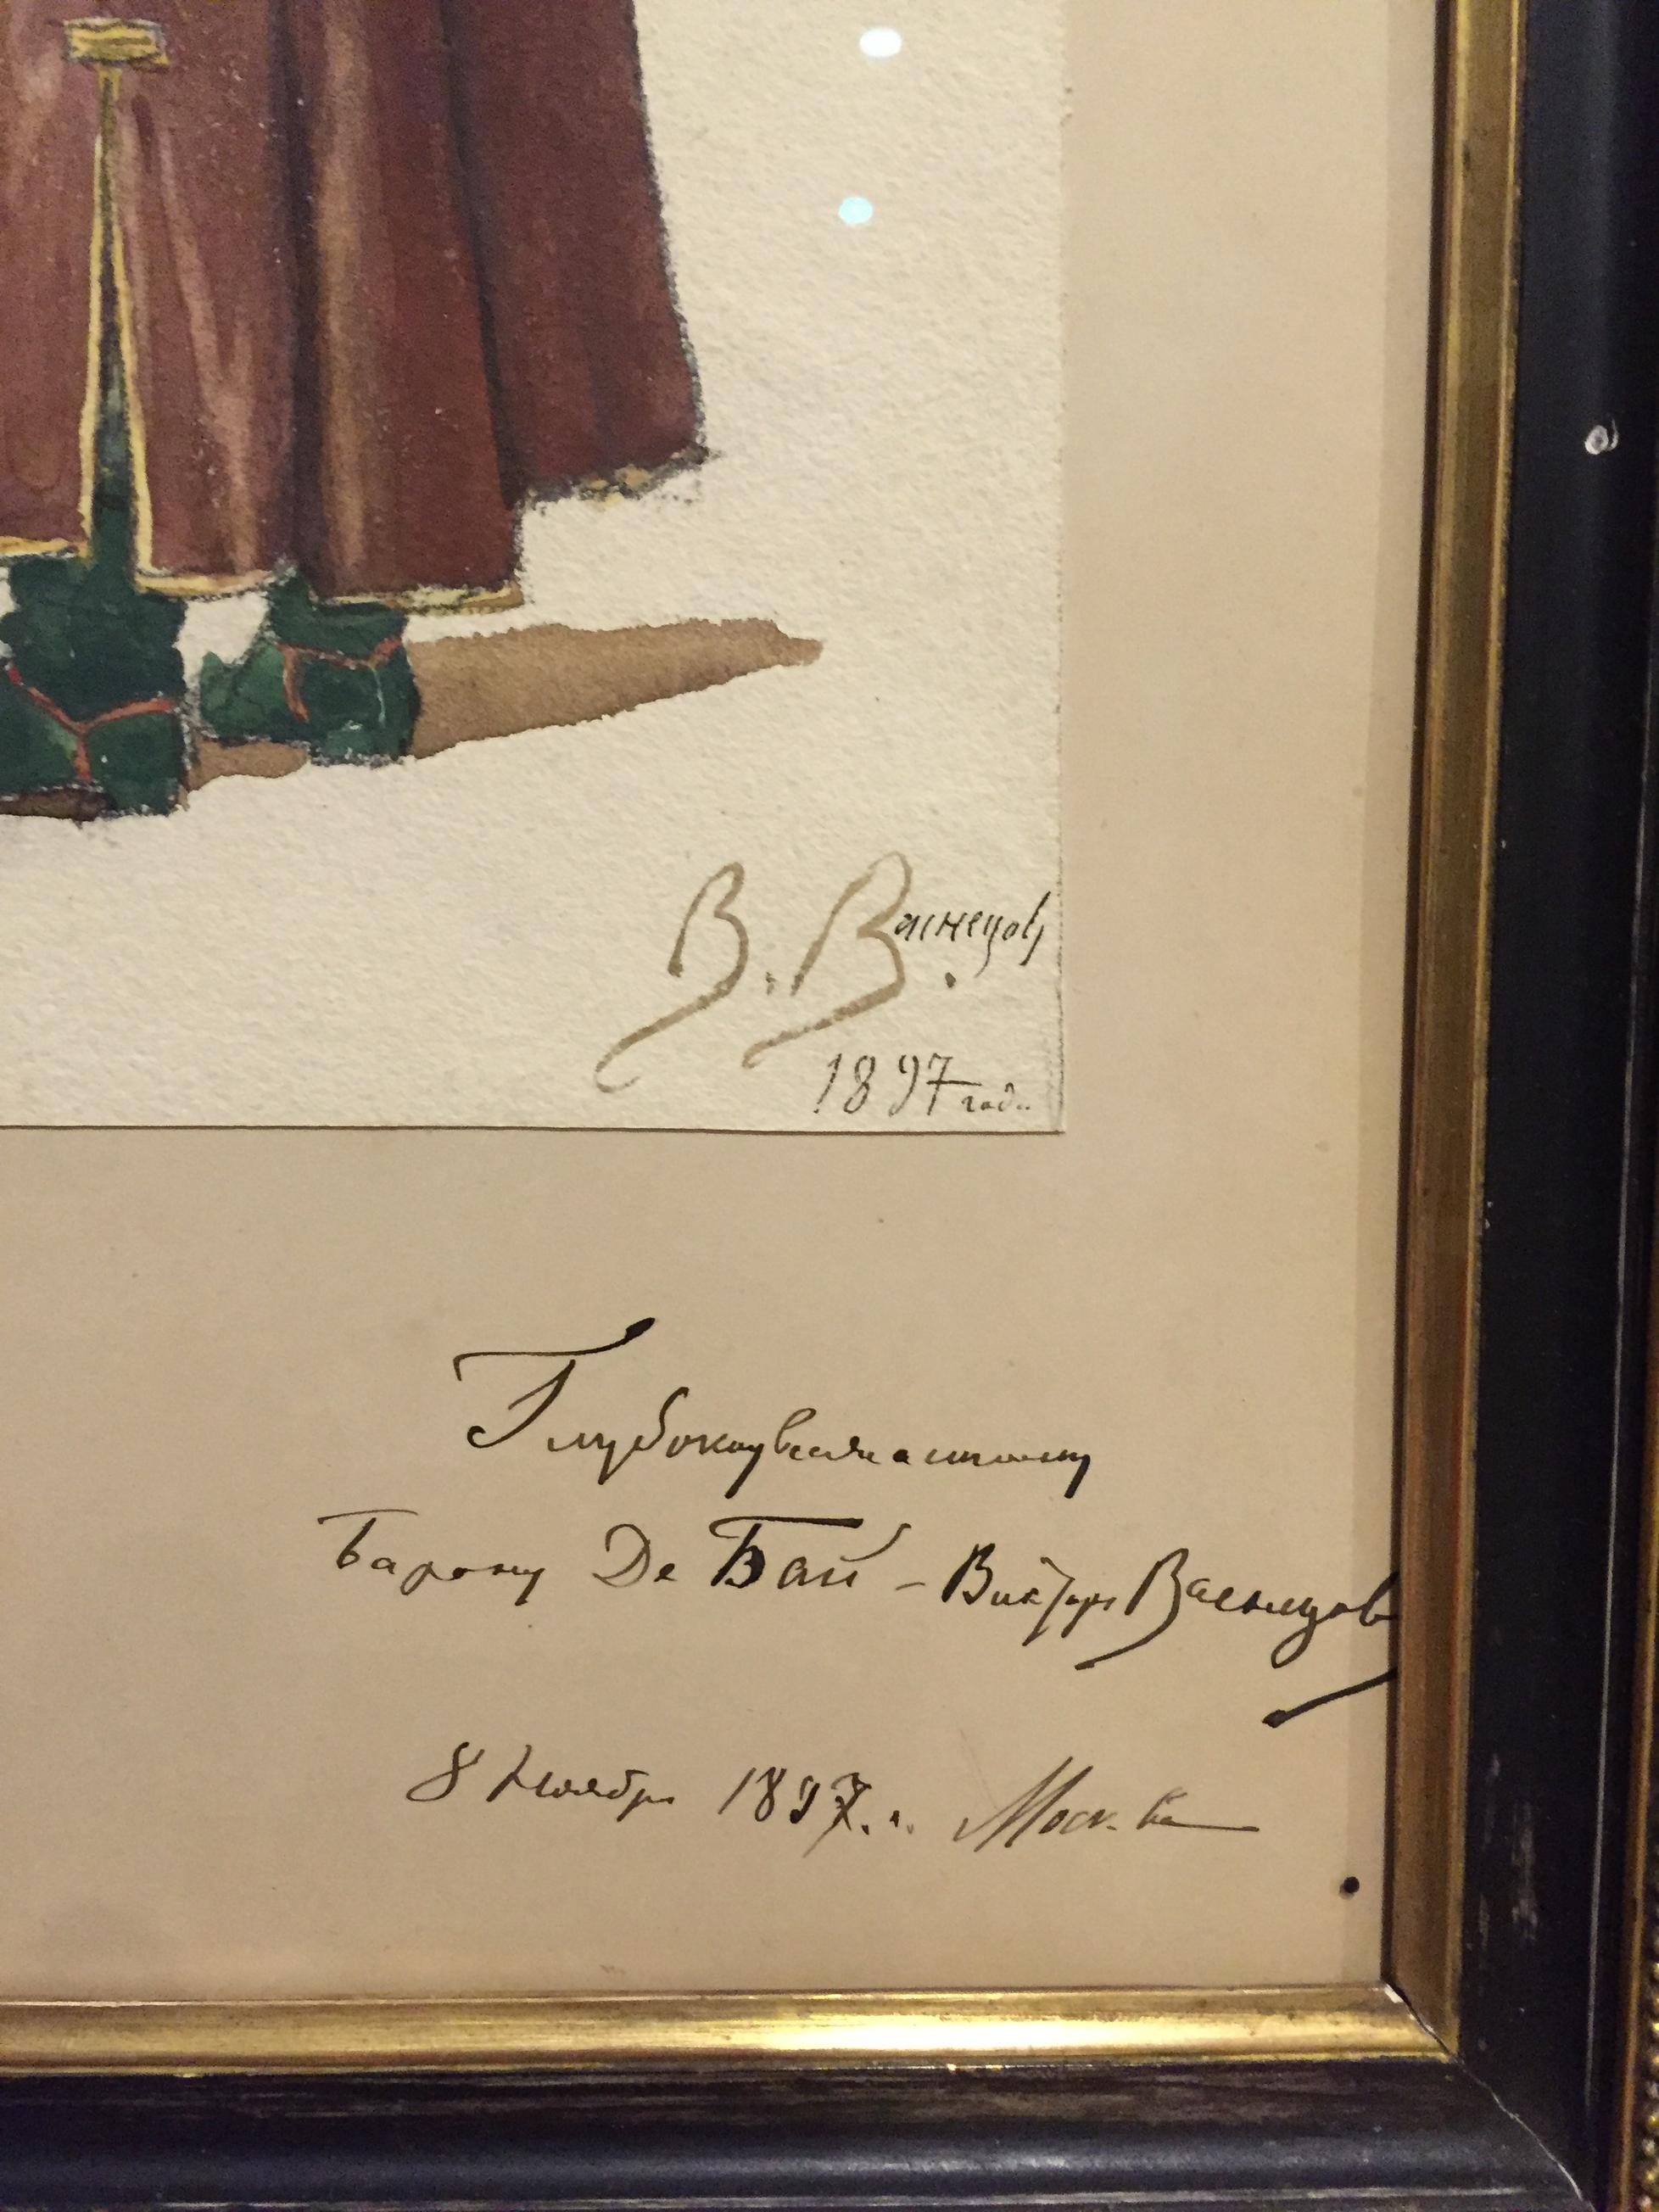 В. Васнецов.
1897 года
Глубокоуважаемому
Барону Де Бай – Виктор Васнецов
8 Ноября 1897. г. Москва